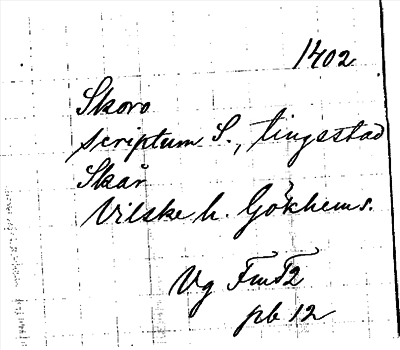 1402
Skoro
scriptum S., tingsstad
Skår
Vilske h. Gökhems.
Vg FmT2
pb 12